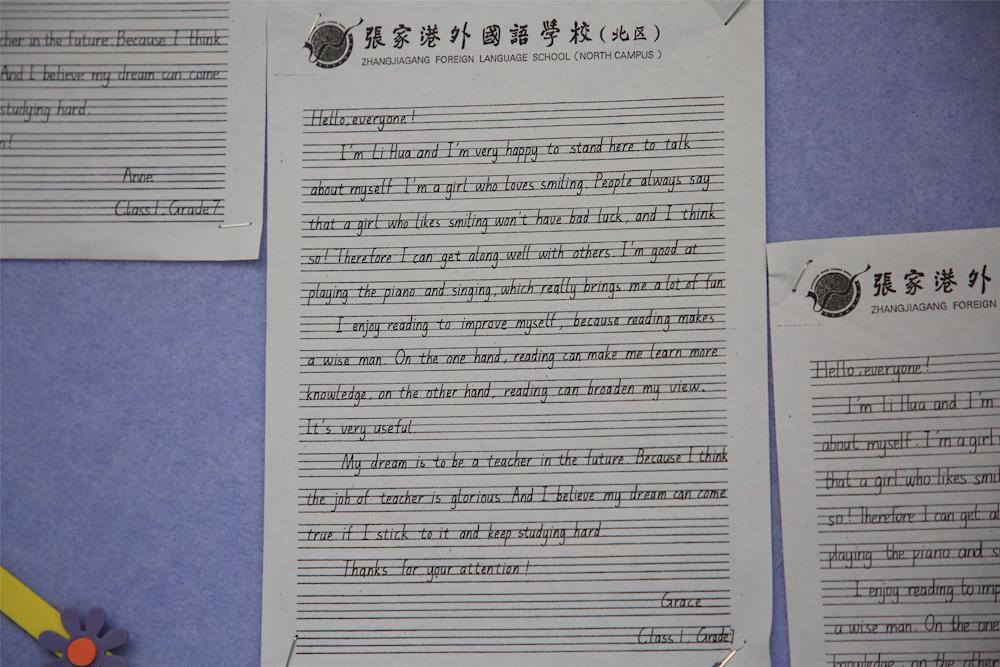 her in the future. Because I think
And I believe my dream can come
studying hard.
n!
Anne
Class 1, Grade 7
張家港外國語學校(北区)
ZHANGJIAGANG FOREIGN LANGUAGE SCHOOL (NORTH CAMPUS)
Hello, everyone!
I'm Li Hua and I'm very happy to stand here to talk
about myself. I'm a girl who loves smiling. People always say
that a girl who likes smiling won't have bad luck, and I think
so! Therefore I can get along well with others. I'm good at
playing the piano and singing, which really brings me a lot of fun.
I enjoy reading to improve myself, because reading makes
a wise man. On the one hand, reading can make me learn more
knowledge, on the other hand, reading can broaden my view.
It's very useful.
My dream is to be a teacher in the future. Because I think
the job of teacher is glorious. And I believe my dream can come
true if I stick to it and keep studying hard.
Thanks for your attention!
Grace
Class 1, Grade 7
張家港外
ZHANGJIAGANG FOREIGN
Hello, everyone!
I'm Li Hua and I'm
about myself. I'm a girl
that a girl who likes smil
so! Therefore I can get al
playing the piano and s
I enjoy reading to imp
a wise man. On the one
knowledge, on the other